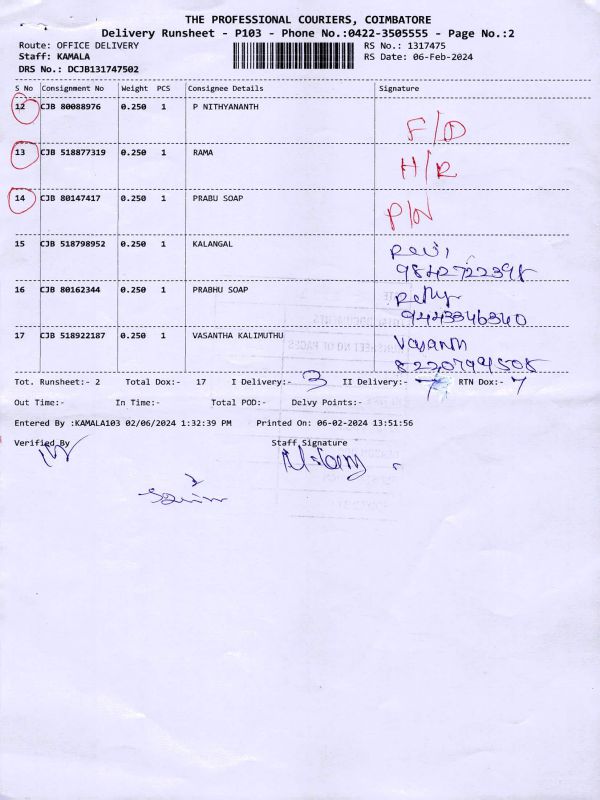 THE PROFESSIONAL COURIERS, COIMBATORE
Delivery Runsheet - P103 - Phone No.:0422-3505555 - Page No.:2
Route: OFFICE DELIVERY RS No.: 1317475
Staff: KAMALA RS Date: 06-Feb-2024
DRS No.: DCJB131747502
S No Consignment No Weight PCS Consignee Details Signature
12 CJB 80088976 0.250 1 P NITHYANANTH
F/D
13 CJB 518877319 0.250 1 RAMA
H/R
14 CJB 80147417 0.250 1 PRABU SOAP
P/N
15 CJB 518798952 0.250 1 KALANGAL Ravi
9842722398
16 CJB 80162344 0.250 1 PRABHU SOAP
9443346340
17 CJB 518922187 0.250 1 VASANTHA KALIMUTHU Vasanth
Tot. Runsheet:- 2 Total Dox:- 17 I Delivery:- 3 II Delivery:- 7 RTN Dox:- 7
Out Time:- In Time:- Total POD:- Delvy Points:-
Entered By :KAMALA103 02/06/2024 1:32:39 PM Printed On: 06-02-2024 13:51:56
Verified By Staff Signature